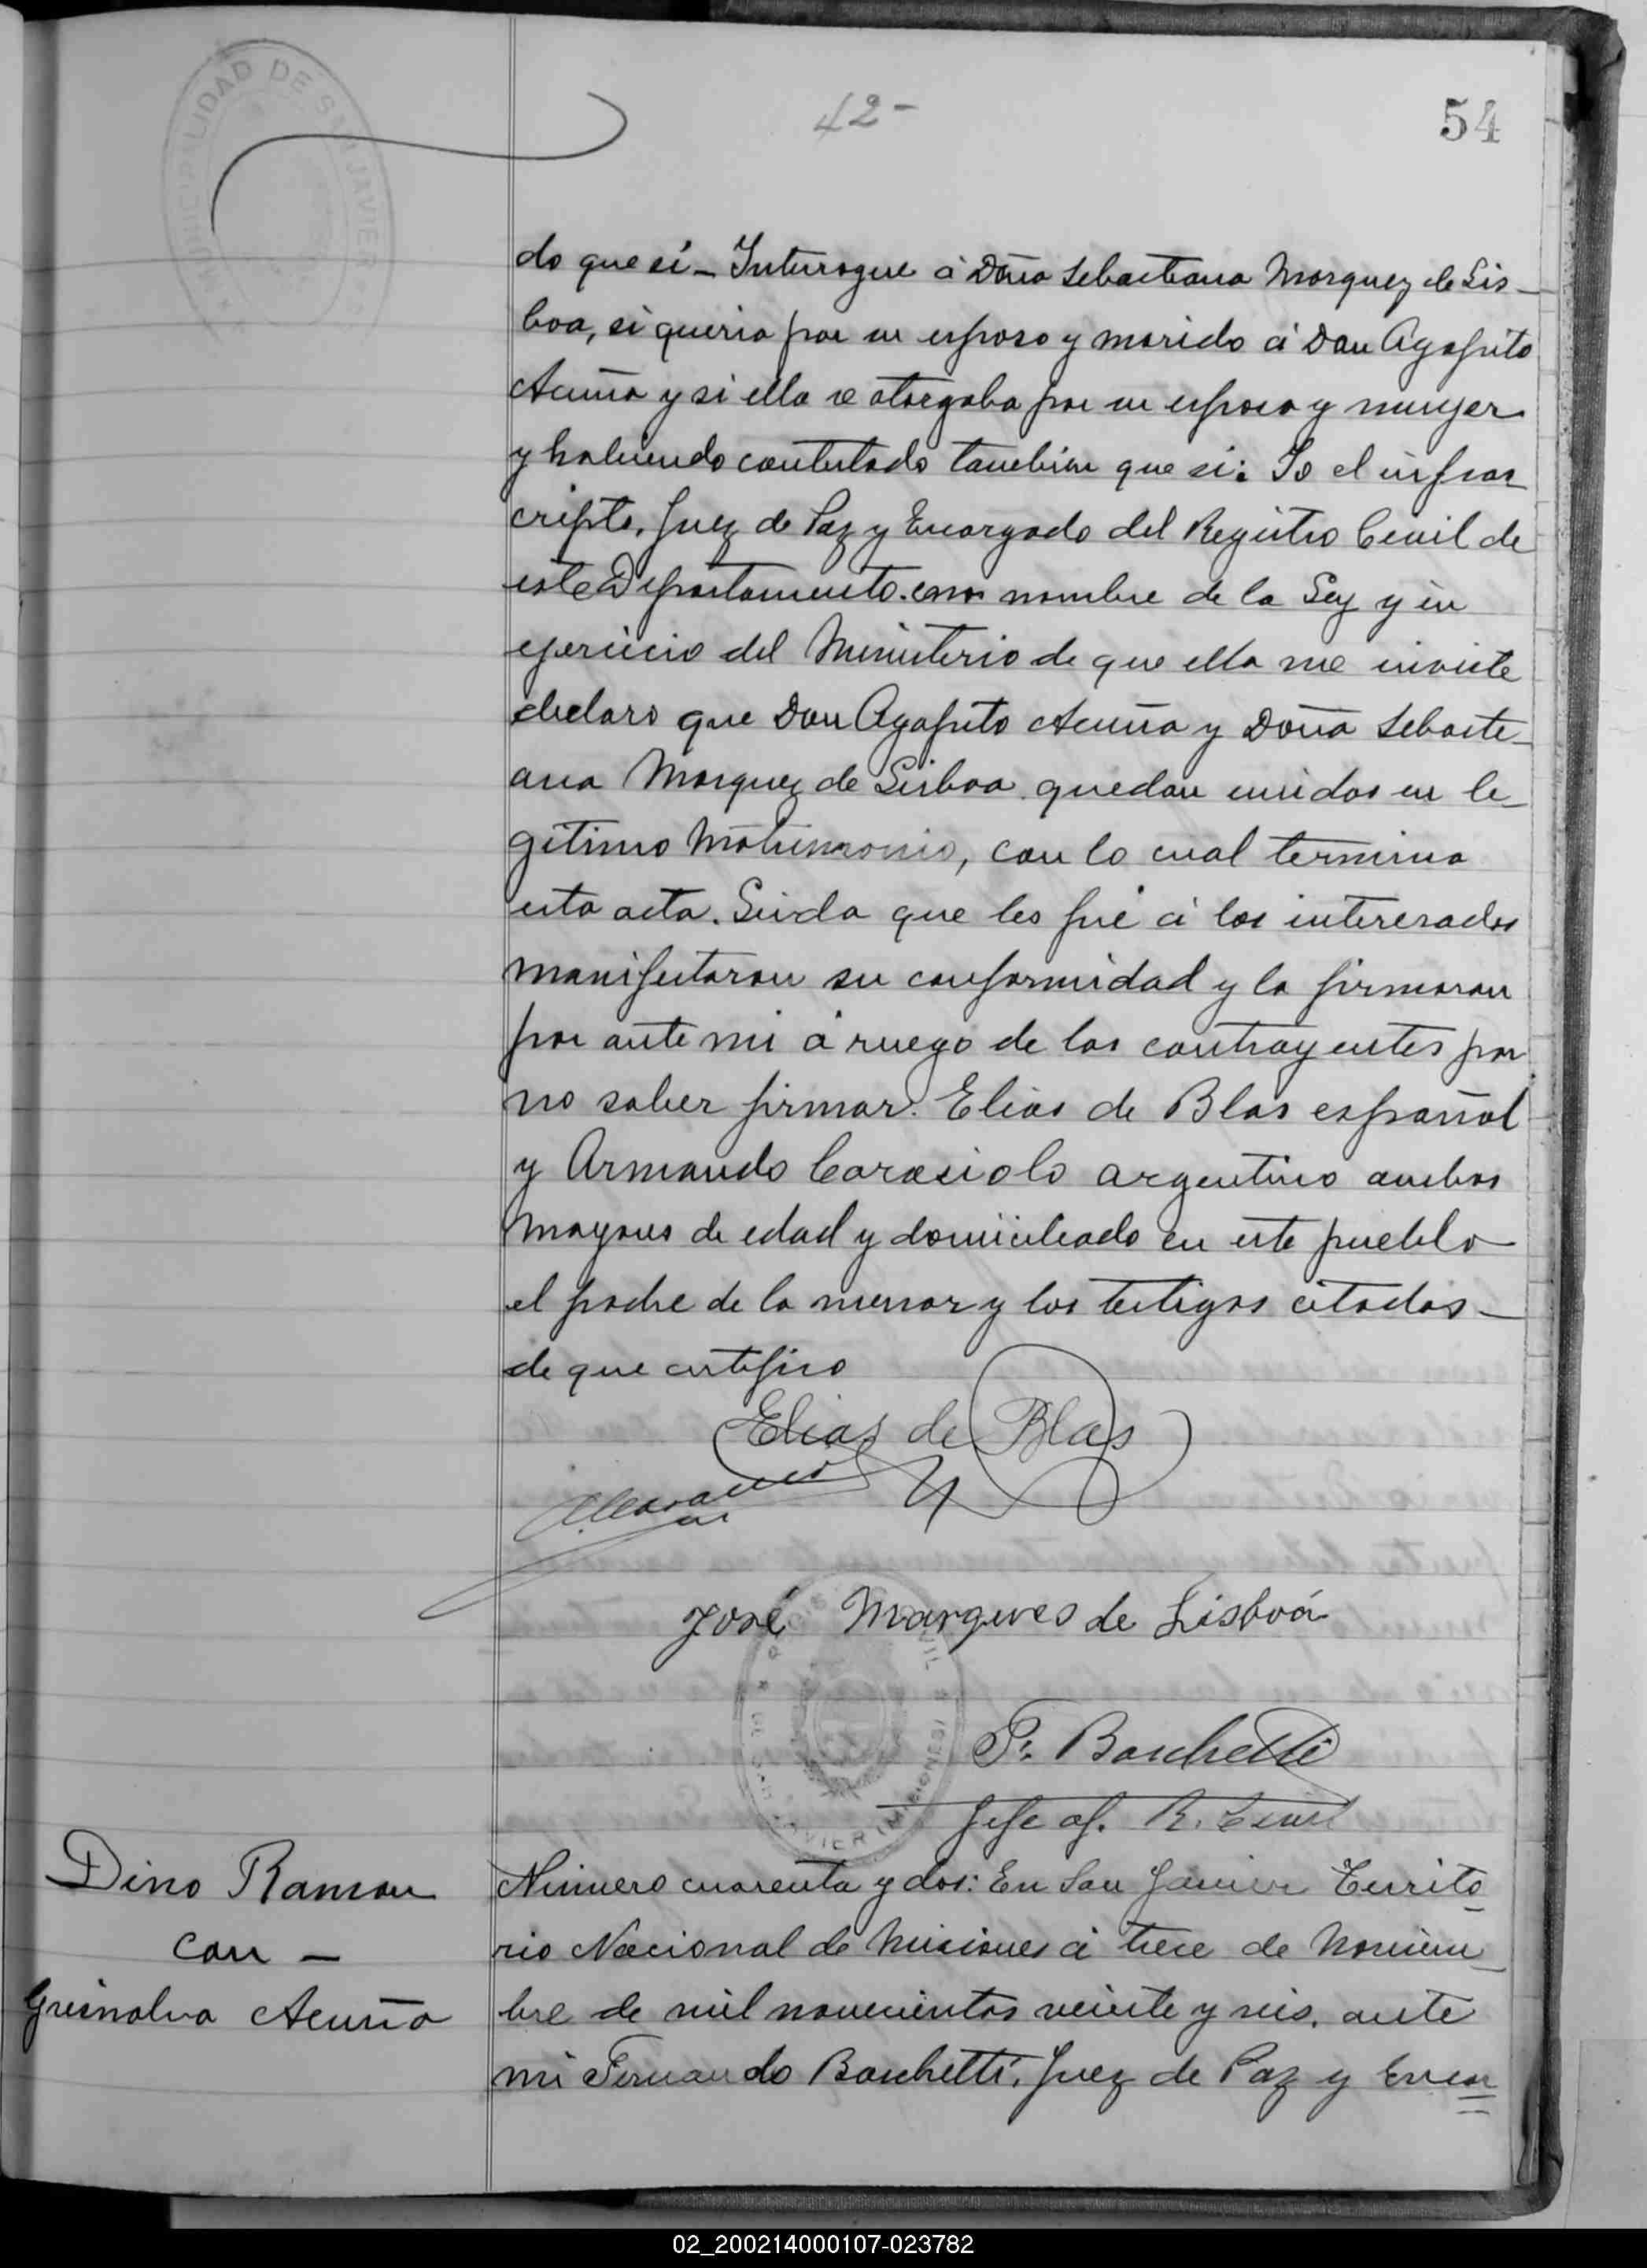 MUNICIPALIDAD DE SAN JAVIER
42-
54
do que si - Interrogue á Dña Sebastiana Marquez de Lis-
boa, si queria por su esposo y marido á Don Agapito
Acuña y si ella se otorgaba por su esposa y muger
y habiendo contestado tambien que si: Yo el infras
cripto, Juez de Paz y Encargado del Registro Civil de
este Departamento. en nombre de la Ley y en
ejercicio del Ministerio de que ella me inviste
declaro que Don Agapito Acuña y Doña Sebasti-
ana Marquez de Lisboa quedan unidos en le-
gitimo Matrimonio, con lo cual termina
esta acta. Leida que les fué á los interesados
manifestaron su conformidad y la firmaron
por ante mi á ruego de los contrayentes por
no saber firmar. Elias de Blas español
y Armando Carasiolo argentino ambos
mayores de edad y domiciliado en este pueblo
el padre de la menor y los testigos citados -
de que certifico
Elias de Blas
José Marques de Lisboá
F. Boschetti
Jefe of. R. Civil
Dino Ramon
con -
Grisnalva Acuña
Número cuarenta y dos: En San Javier Territo
rio Nacional de Misiones á trece de Noviem
bre de mil novecientos veinte y seis. ante
mi Fernando Boschetti, Juez de Paz y Encar
02_200214000107-023782